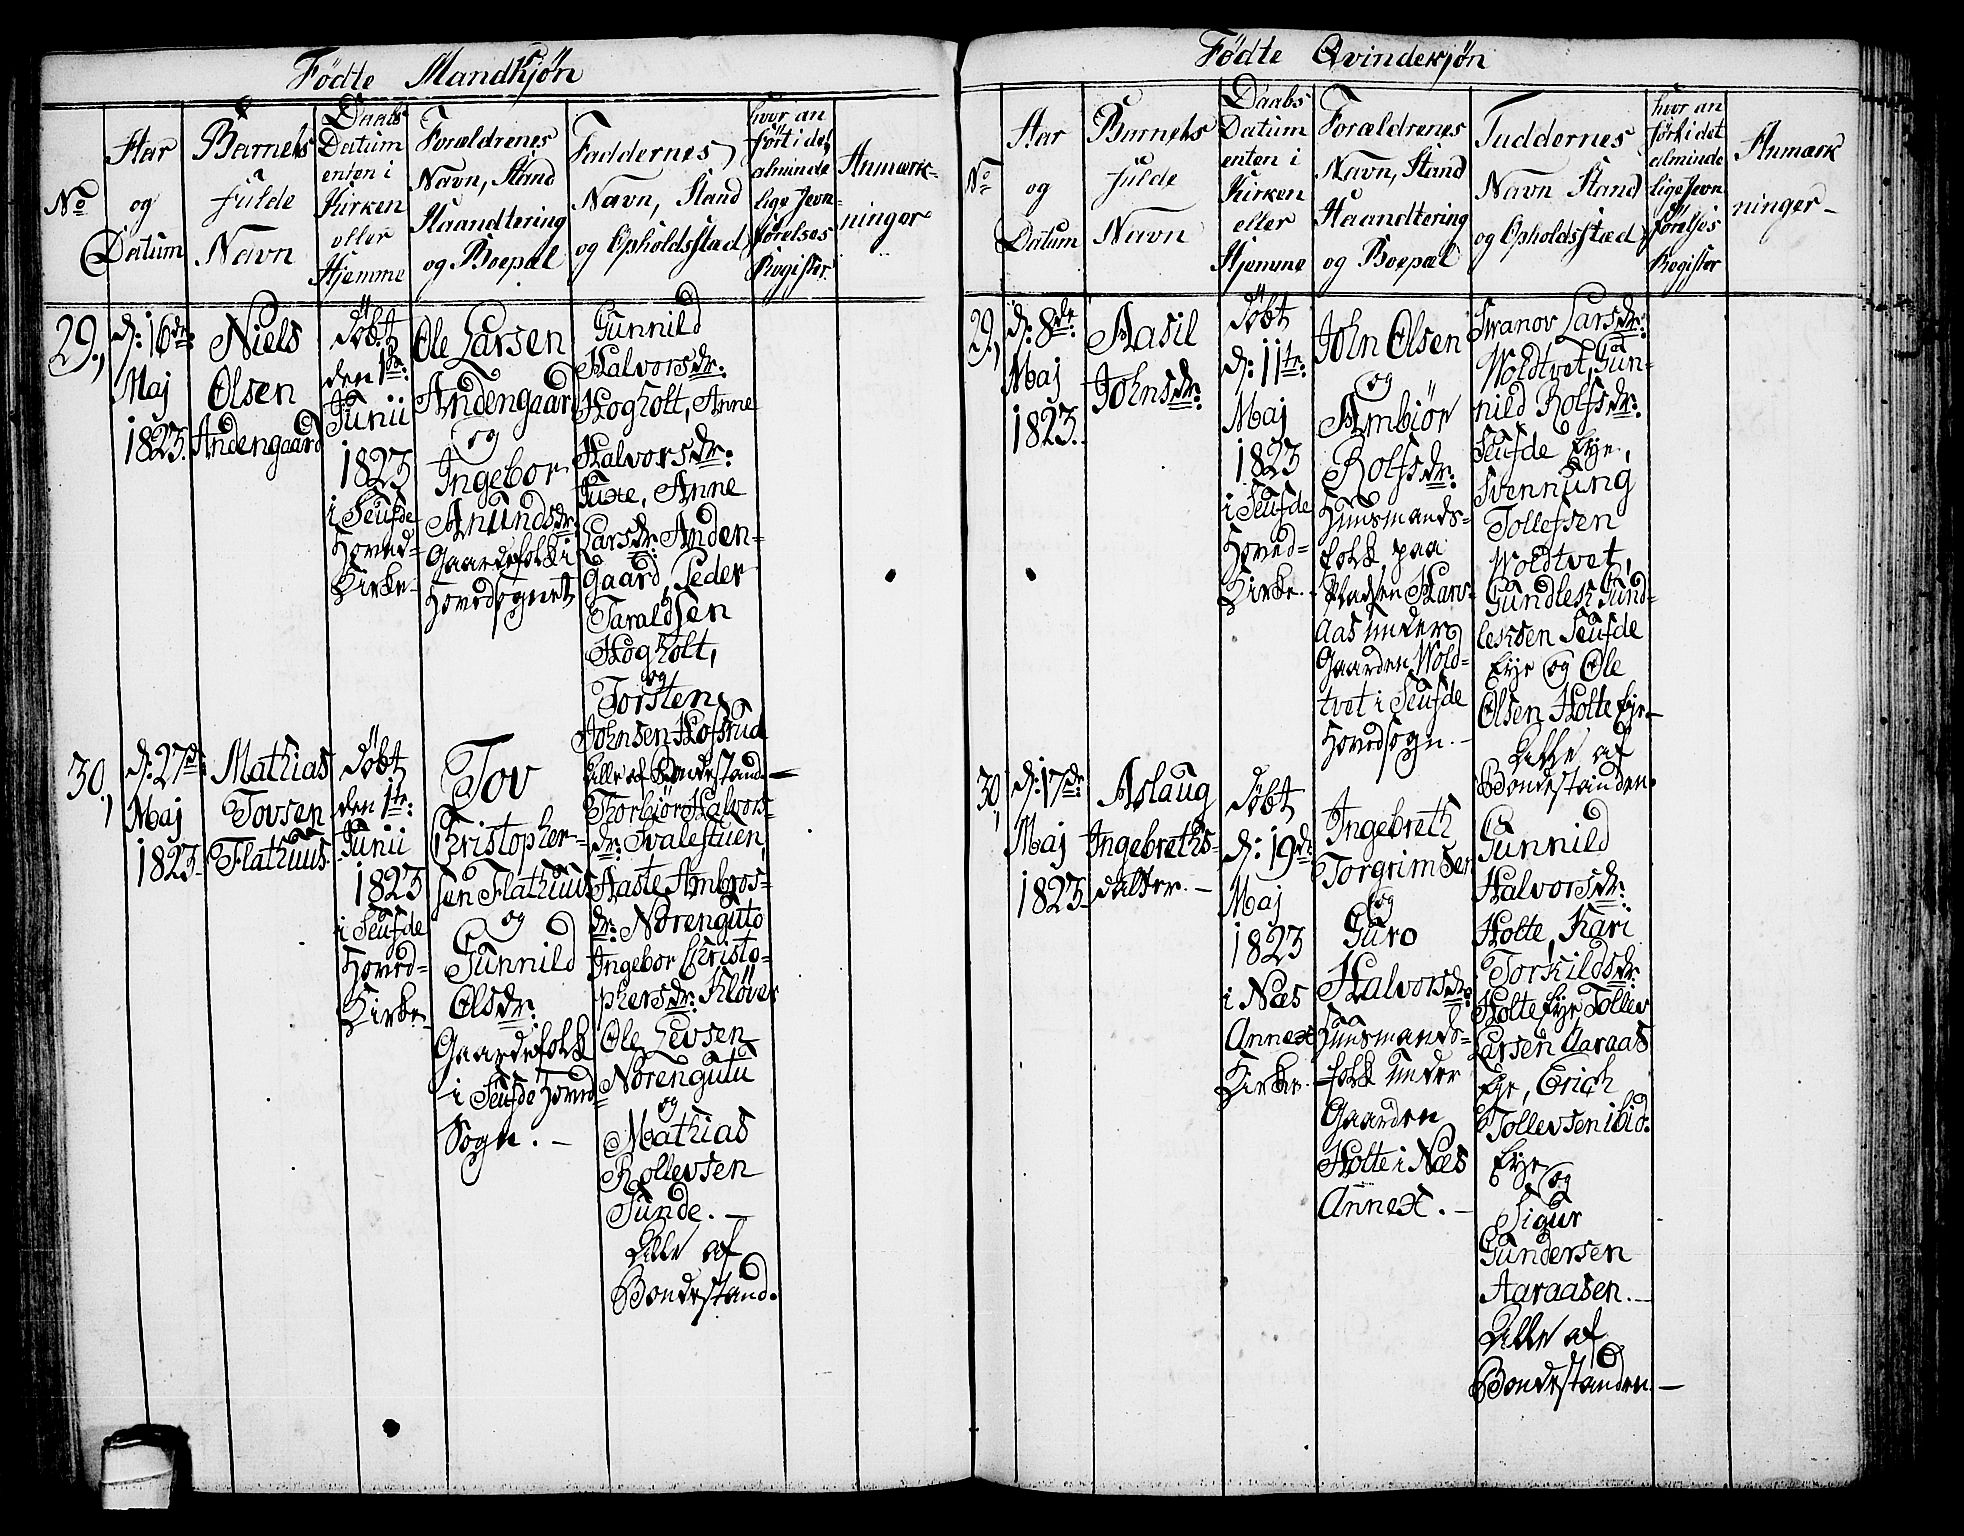 Fødte Mandkjøn
No
Aar
og
Datum
Barnets
fulde
Navn
Daabs
Datum
enten i
Kirken
eller
Hjemme
Forældrenes
Navn, Stand
Haandtering
og Boepæl
Faddernes
Navn, Stand
og Opholdsstad
hvor an
ført i det
alminde
lige Jevn-
førelses
Register
Anmærk-
ninger
29.,
d: 16de:
Maj
1823.
Niels
Olsen
Andengaard
døbt
den 1te:
Junii
1823
i Seufde
Hoved-
Kirke-
Ole Larsen
Andengaard
og
Ingebor
Anundsdr:
Gaardefolk i
Hovedsognet
Gunnild
Halvorsdr:
Hogholt, Anne
Halvorsdr:
Juxe, Anne
Larsdr: Anden-
gaard, Peder
Taraldsen
Hogholt,
og
Torsten
Johnsen Hofsrud
Alle af Bondestand.-
30.,
d: 27de:
Maj
1823.
Mathias
Tovsen
Flathuus.
døbt
den 1te:
Junii
1823
i Seufde
Hoved-
Kirke-
Tov
Christopher-
sen Flathuus
og
Gunnild
Olsdr:
Gaardefolk
i Seufde Hoved-
Sogn. -
Thorbiør Halvors-
dr: Svalestuen,
Aaste Ambros-
dr: Nørenguto
Ingebor Christo-
phersdr: Kløver
Ole Levsen
Nørengutu
og
Mathias
Rollevsen
Sunde. -
Alle af
Bondestand.
Fødte Qvindekjøn
No
Aar
og
Datum
Barnets
fulde
Navn
Daabs
Datum
enten i
Kirken
eller
Hjemme
Forældrenes
Navn, Stand
Haandtering
og Boepæl
Fuddernes
Navn Stand
og Opholdsstæd
hvor an
ført i det
alminde
lige Jevn
førelses
Register
Anmærk
ninger-
29.,
d: 8de:
Maj
1823.
Aasil
Johnsdr:
døbt
d: 11te:
Maj
1823
i Seufde
Hoved-
Kirke.
John Olsen
og
Ambiør
Rolfsdr:
Huusmands-
folk paa
Pladsen Hans-
aas under
Gaarden Wold-
tvet i Seufde
Hovedsogn. -
Svanov Larsdr:
Woldtvet, Gun-
nild Rolfsdr:
Seufde Eye,
Svennung
Tollefsen
Woldtvet,
Gundlesk Gund-
lesksen Seufde
Eye og Ole
Olsen Holte Eye-
Alle af
Bondestanden.
30,
d: 17de:
Maj
1823.
Aslaug
Ingebreths-
datter. -
døbt
d: 19de
Maj
1823
i Næs
Annex
Kirke.
Ingebreth
Torgrimsen
og
Guro
Halvorsdr:
Huusmands-
folk under
Gaarden
Holte i Næs
Annex. -
Gunnild
Halvorsdr:
Holte, Kari
Torkildsdr:
Holte Eye Tollev
Larsen Aaraas
Eye, Erich
Tollevsen ibid:
Eye og
Sigur
Gundersen
Aaraasen. -
Alle af
Bondestanden. -